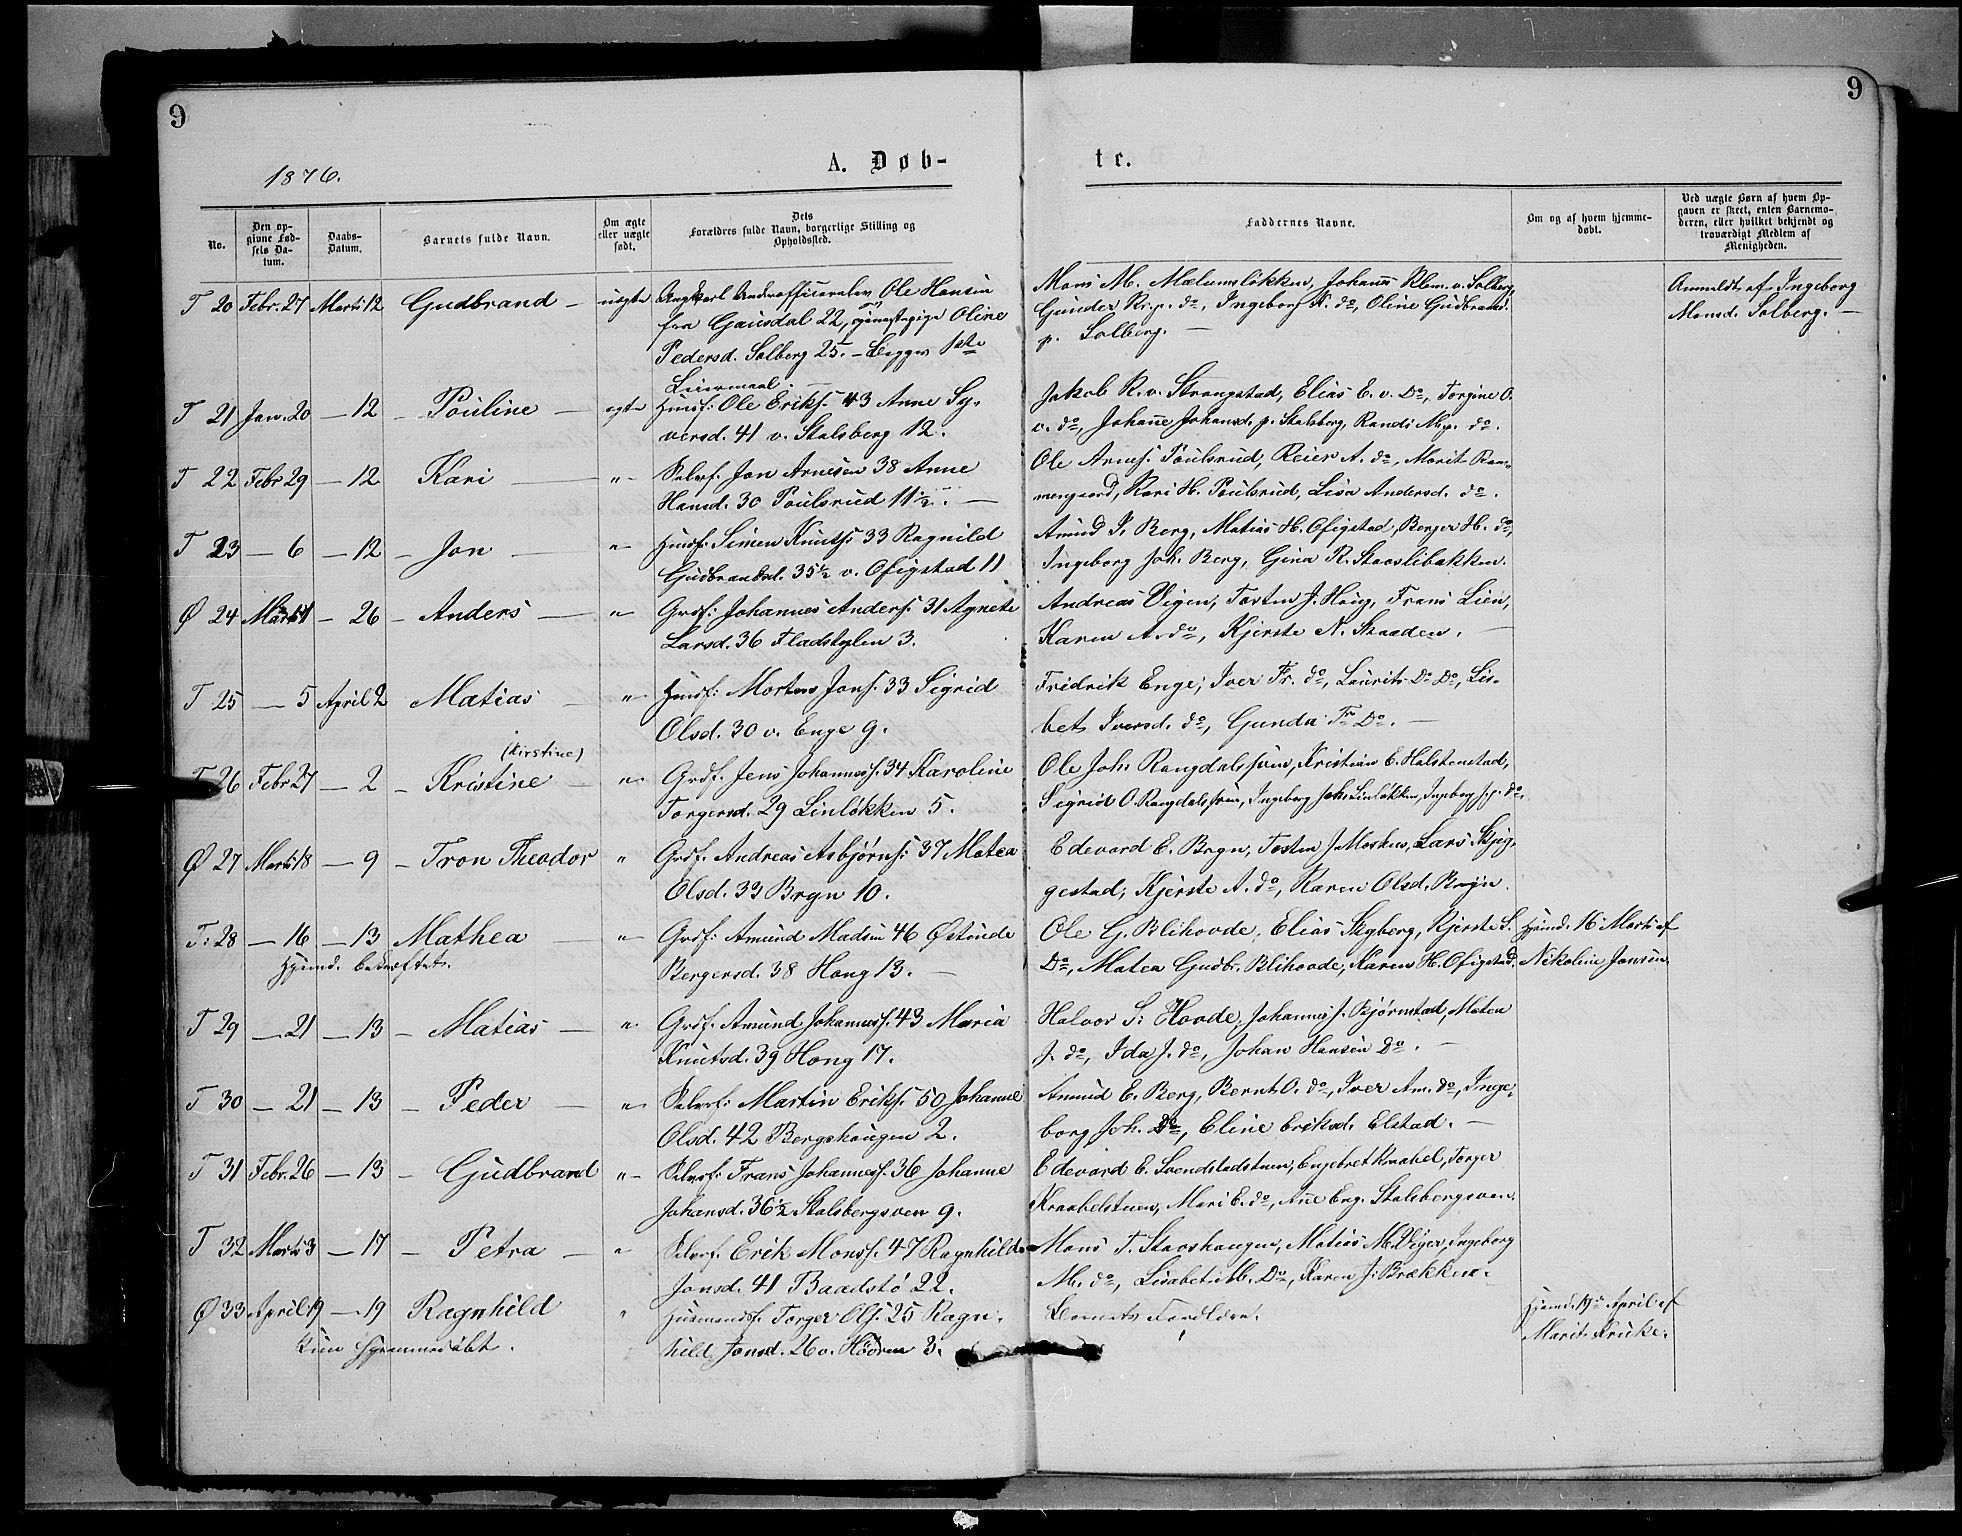 9
9
1876.
A. Døb-
te.
No.
Den op-
givne Fød-
sels Da-
tum.
Daabs-
Datum.
Barnets fulde Navn.
Om ægte
eller uægte
født.
Dets
Forældres fulde Navn, borgerlige Stilling og
Opholdssted.
Faddernes Navne.
Om og af hvem hjemme-
døbt.
Ved uægte Børn af hvem Op-
gaven er skeet, enten Barnemo-
deren, eller hvilket bekjendt og
troværdigt Medlem af
Menigheden.
T 20 Febr. 27 Marts 12 Gudbrand – uægte Ungkarl Underofficerselev Ole Hansen
fra Gausdal 22, Tjenestepige Oline
Pedersd. Solberg 25. – Begges 1ste
Leiermaal. –
Mons M. Mælumsløkken, Johans Klem. v. Solberg,
Gunder Kr. p. do, Ingeborg K. do, Oline Gudbrandsd.
p. Solberg. –
Anmeldt af Ingeborg
Monsd. Solberg. –
T 21 Jan. 20 – 12 – Pouline – ægte Husf: Ole Eriks. 43 Anne Sy-
versd. 41 v. Stalsberg 12.
Jakob K. v. Strangstad, Elias E. v. Do, Torgine O.
v. do, Johanne Johansd. p. Stalsberg, Randi M. p. do.
T 22 Febr 29 – 12 Kari – " – Selvf. Jon Arnesen 38 Anne
Hansd. 30 Poulsrud 11½. –
Ole Arnes. Poulsrud, Reier A. do, Marit Ram-
mengaard, Kari H. Poulsrud, Lisa Andersd. do.
T 23 – 6 – 12 – Jon – " Husf: Simen Knuts. 33 Ragnild
Gudbrandsd. 35½ v. Ofigstad 11
Amund I. Berg, Matias H. Ofigstad, Berger H. do,
Ingeborg Joh. Berg, Gina R. Staaslibakken.
Ø 24 Marts 11 – 26 – Anders – " Grdf: Johannes Anders. 31 Agnete
Larsd. 36 Fladstylen 3.
Andreas Vigen, Torsten J. Haug, Frans Lien,
Karen A. do, Kjerste N. Staaden. –
T 25 – 5 April 2 Matias – " Husf: Morten Jons. 33 Sigrid
Olsd. 30 v. Enge 9.
Fridrik Enge, Iver Fr. do, Laurits D. Do, Lis-
bet Iversd. do, Gunda Fr. Do. –
(Kirstine)
T 26 Febr 27 – 2 – Kristine – " Grdf. Jens Johanness. 34 Karoline
Torgersd. 29 Linløkken 5.
Ole Joh. Rangdalssven, Kristian E. Halstenstad,
Sigrid O. Rangdalssven, Ingeborg Joh. Linløkken, Ingeborg J. p. do.
Ø 27 Marts 18 – 9 – Tron Theodor " Grdf. Andreas Asbjørns. 37 Matea
Olsd. 33 Bryn 10.
Edevard E. Bryn, Tosten J. Moshus, Lars Skjeg-
gestad, Kjerste A. do, Karen Olsd. Bryn.
T: 28 – 16 – 13 Mathea – " Grdf: Amund Madsen 46 Østinde
Hjemd. bekræftet.
Bergersd. 38 Hong 13. –
Ole G. Blihovde, Elias Skyberg, Kjerste S.
Do, Matea Gudbr. Blihovde, Karen H. Ofigstad.
Hjemd. 16 Marts af
Nikoline Jonsen.
T 29 – 21 – 13 – Matias – " Grdf. Amund Johanness. 43 Maria
Knutsd. 39 Hong 17.
Halvor S. Hovde, Johannes J. Bjørnstad, Matea
J. do, Ida J. do, Johan Hansen Do. –
T 30 – 21 – 13 – Peder – " Selvf: Martin Eriks. 50 Johanne
Olsd. 42 Bergshaugen 2.
Amund E. Berg, Bernt O. do, Iver Am. do, Inge-
borg Joh. Do, Eline Eriksd. Elstad. –
T 31 Febr. 26 – 13 – Gudbrand " Selvf: Frans Johanness. 36 Johanne
Johansd. 36½ Stalsbergsven 9.
Edevard E. Svendstadstuen, Engebret Kraabel, Torger
Kraabelstuen, Mari E. do, Ane Eng. Stalsbergsven.
T 32 Marts 3 – 17 – Petra – " Selvf. Erik Mons. 47 Ragnhild
Jonsd. 41 Baadstø 22.
Mons T. Staashaugen, Matias M. Vigen, Ingeborg
M. do, Lisabet M. Do, Karen J. Brækken.
Ø 33 April 19 – 19 Ragnhild " Husmandsf. Torger Ols. 25 Ragn-
Kun hjemmedøbt.
hild Jonsd. 26 v. Hødren 3.
Barnets Forældre.
Hjemd. 19de April af
Marit Kruke.